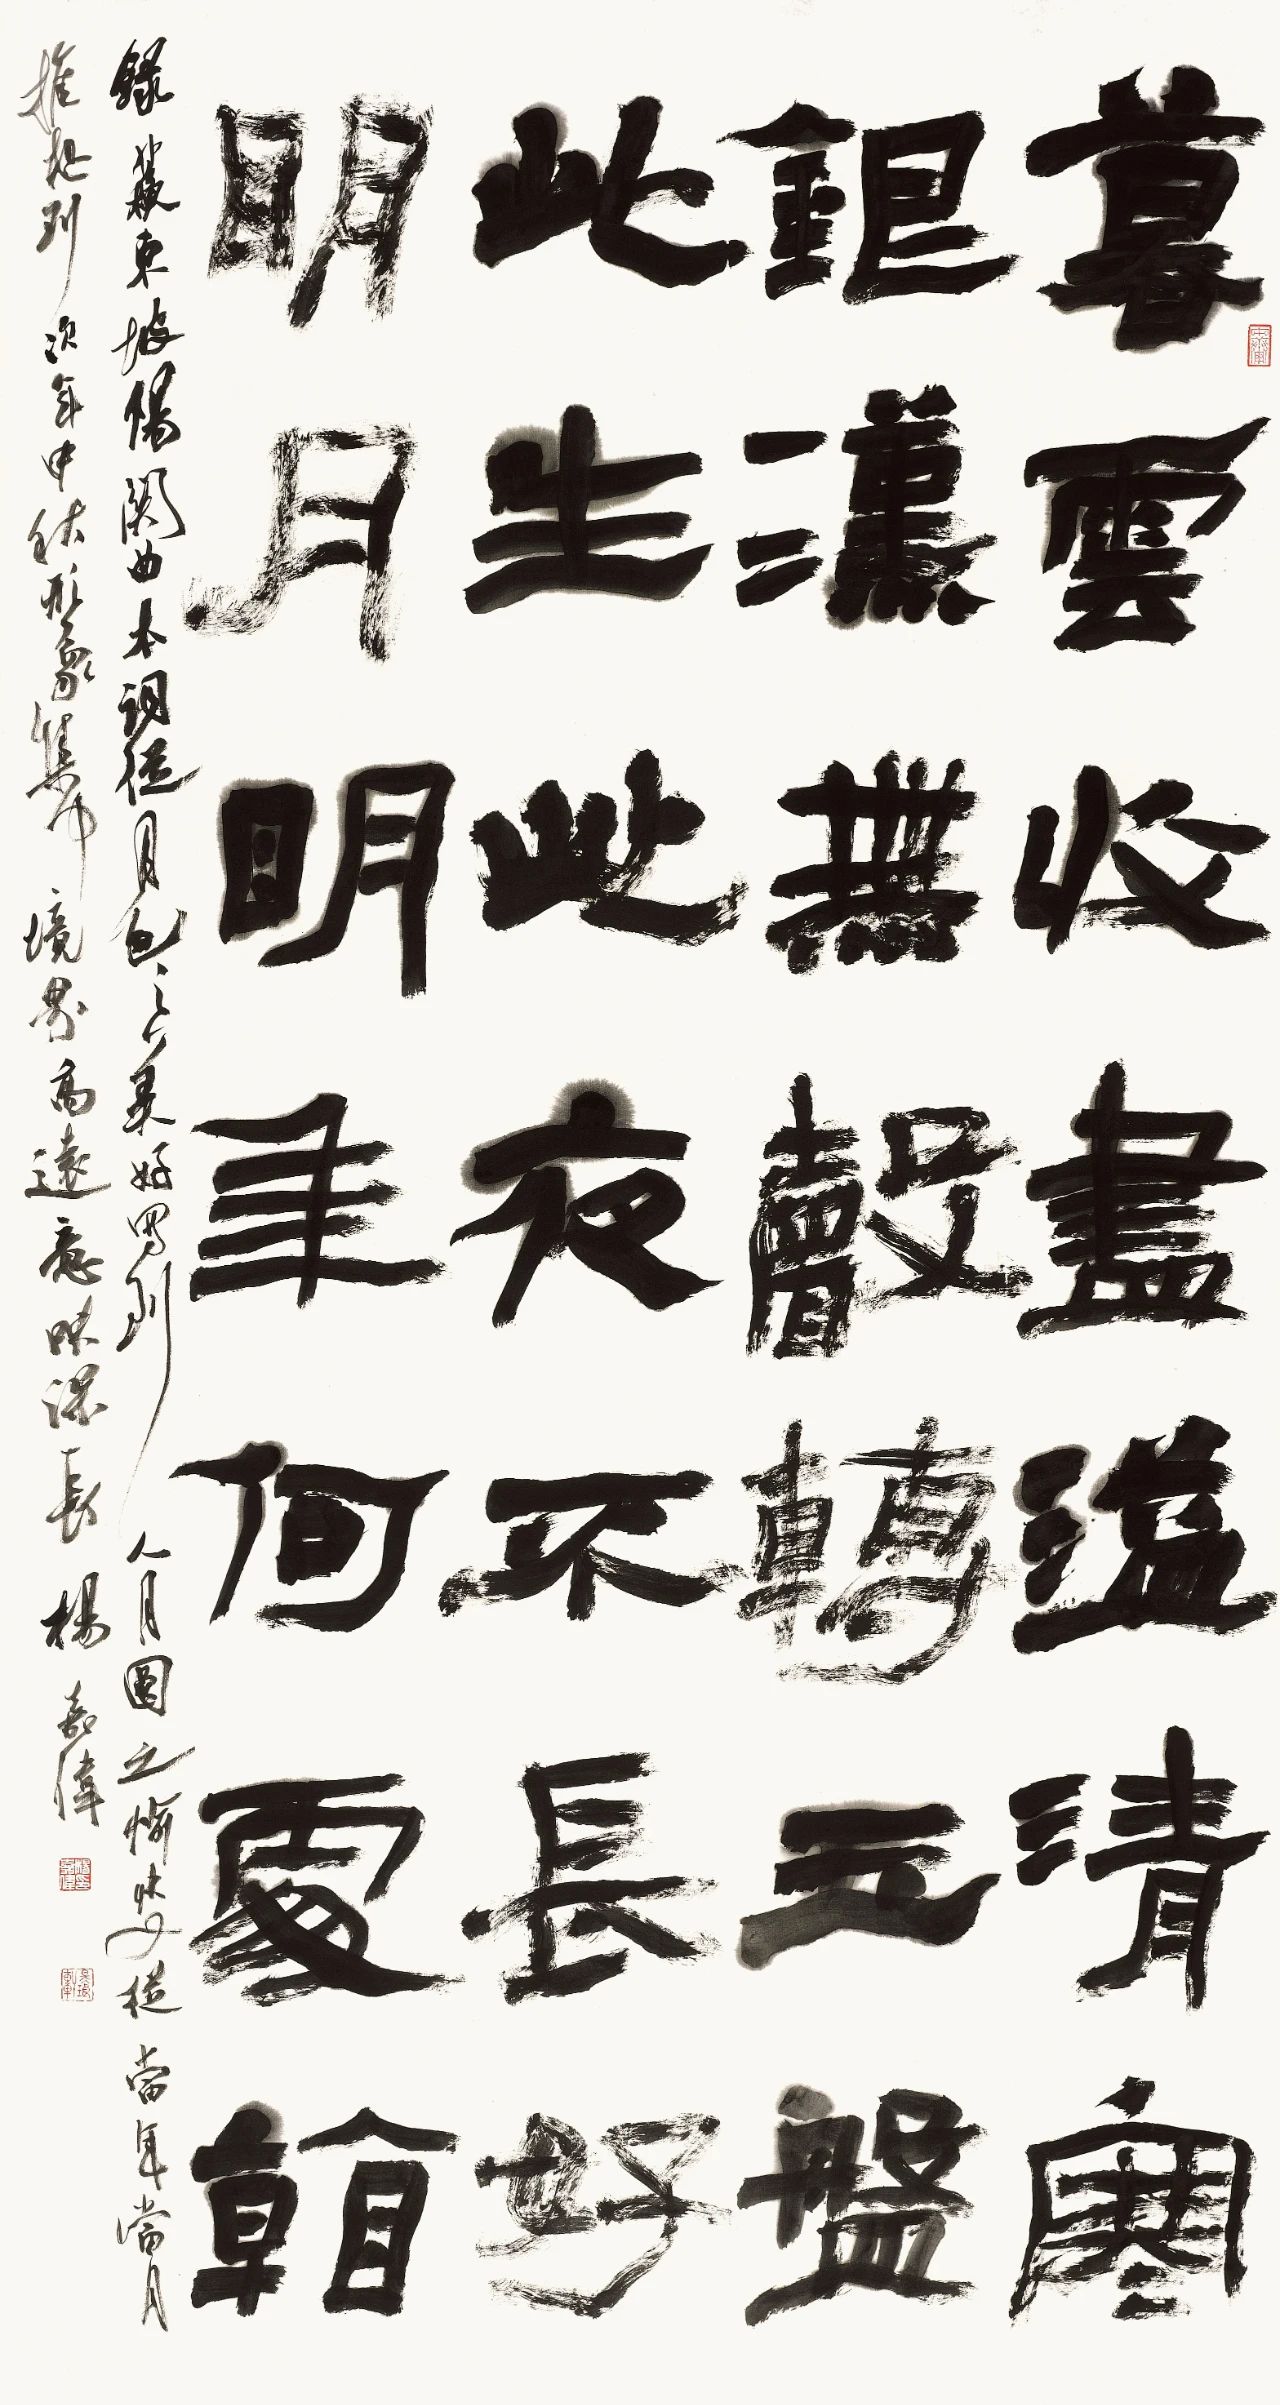 暮雲收盡溢清寒
銀漢無聲轉玉盤
此生此夜不長好
明月明明年何處看
錄蘇東坡陽關曲本詞從月色之美好寫到人月圓之愉快又從當年當月
推想到次年中秋形象集中境界高遠意味深長 楊嘉偉